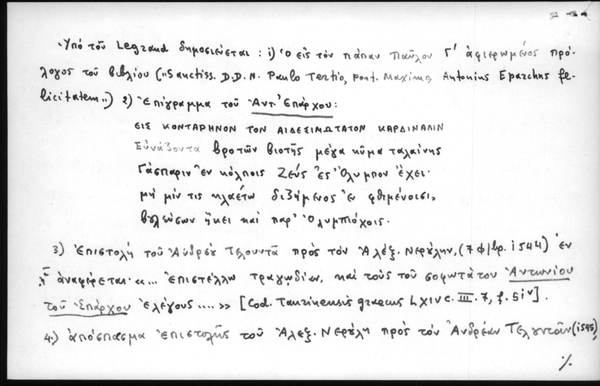 Ὑπό τοῦ Legrand δημοσιεύεται: 1) Ὁ εἰς τόν πάπαν Παῦλον Γ' ἀφιερωμένος πρό-
λογος τοῦ βιβλίου («Sanctiss. D.D.N. Paulo Tertio, Pont. Maximo Antonius Eparchus fe-
licitatem») 2) Ἐπίγραμμα τοῦ Ἀντ. Ἐπάρχου:
ΕΙΣ ΚΟΝΤΑΡΗΝΟΝ ΤΟΝ ΑΙΔΕΣΙΜΩΤΑΤΟΝ ΚΑΡΔΙΝΑΛΙΝ
Εὐνάζοντα βροτῶν βιοτῆς μέγα κῦμα ταλαίνης
Γάσπαριν ἐν κόλποις Ζεύς ἐς Ὄλυμπον ἔχει·
μή μίν τις κλαέτω διζήμενος ἐν φθιμένοισι,
βουλεύσων ἥκει καί παρ' Ὀλυμπιόχοις.
3) Ἐπιστολή τοῦ Ἀνδρέου Τελουντᾶ πρός τόν Ἀλέξ. Νερούλην, (7 φ/βρ. 1544) ἐν
ᾗ ἀναφέρεται «... Ἐπιστέλλω τραγῳδίαν, καί τούς τοῦ σοφωτάτου Ἀντωνίου
τοῦ Ἐπάρχου ἐλέγους ....» [Cod. Taurinensis graecus LXIV c. III. 7, f. 51v].
4) ἀπόσπασμα ἐπιστολῆς τοῦ Ἀλεξ. Νερούλη πρός τόν Ἀνδρέαν Τελουντᾶν (1545),
./.